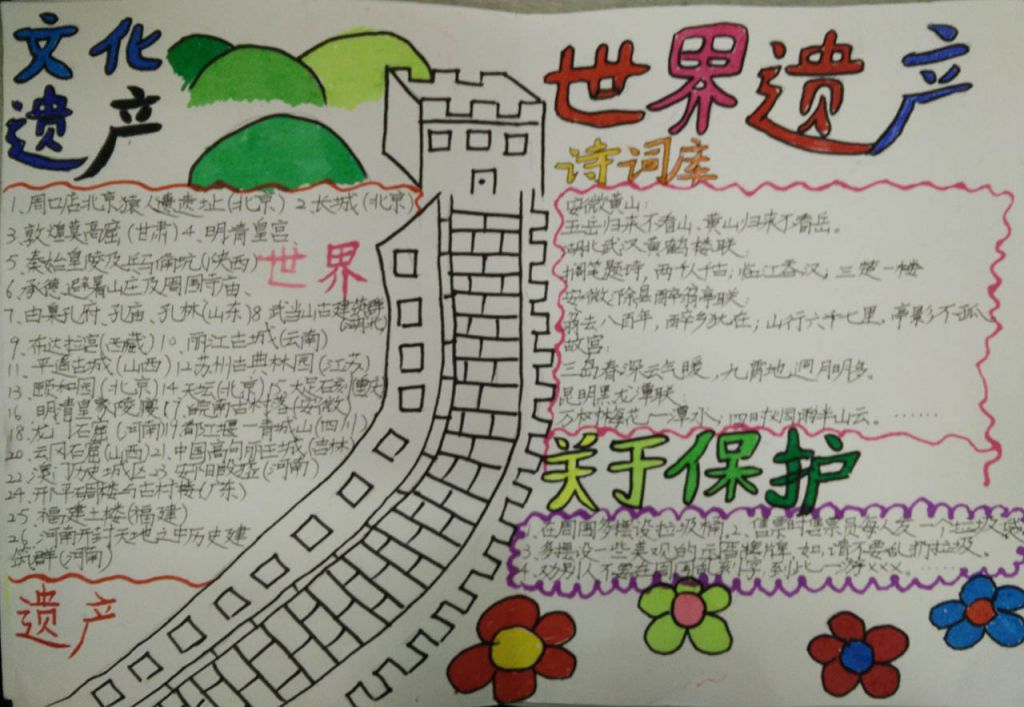 文化
遗产
1、周口店北京猿人遗址(北京) 2、长城(北京)
3、敦煌莫高窟(甘肃)4、明清皇宫
5、秦始皇陵及兵马俑坑(陕西)
6、承德避暑山庄及周围寺庙、
7、曲阜孔府、孔庙、孔林(山东)8 武当山古建筑群(湖北)
9、布达拉宫(西藏)10、丽江古城(云南)
11、平遥古城(山西)12苏州古典林园(江苏)
13、颐和园(北京)14天坛(北京)15、大足石刻(重庆)
16 明清皇家陵寝 17、皖南古村落(安徽)
18、龙门石窟(河南)19、都江堰—青城山(四川)
20 云冈石窟(山西)21、中国高句丽王城(吉林)
22、澳门历史城区 23、安阳殷墟(河南)
24、开平碉楼与古村楼(广东)
25、福建土楼(福建)
26、河南开封天地之中历史建
筑群(河南)
世界
遗产
世界遗产
诗词库
安徽黄山:
五岳归来不看山、黄山归来不看岳。
湖北武汉黄鹤楼联、
搁笔题诗,两人千古;临江吞汉,三楚一楼
安微滁县醉翁亭联:
翁去八百年,醉乡犹在;山行六七里,亭影不孤、
故宫:
三岛春深云气暖,九霄地迥月明多。
昆明黑龙潭联
万树梅花一潭水;四时烟雨半山云。……
关于保护
1、在周围多摆设垃圾桶,2、售票时售票员每人发一个垃圾袋
3、多摆设一些美观的示语牌,如:请不要乱扔垃圾、
4、劝别人不要在周围乱刻字,到此一游×××。……